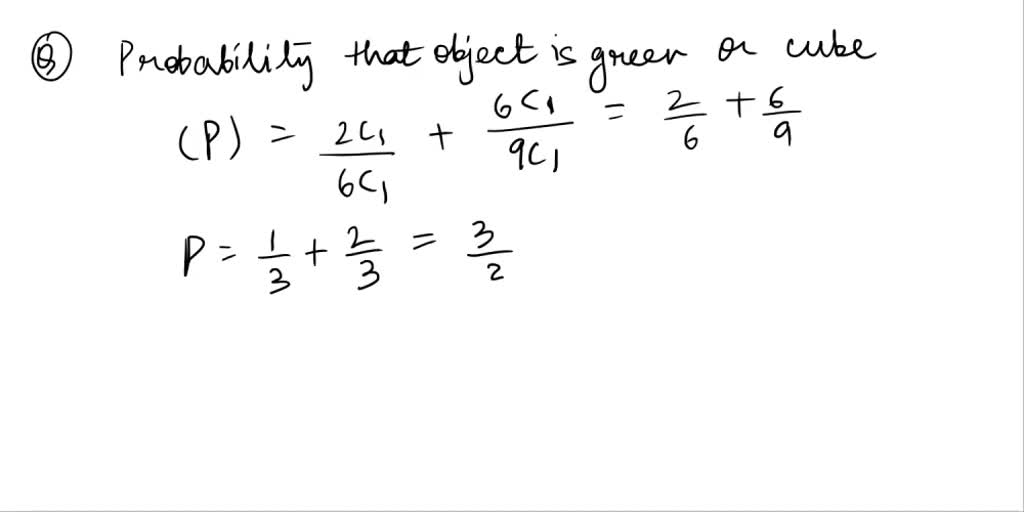 Q Probability that object is green or cube
(P) = 2C₁/6C₁ + 6C₁/9C₁ = 2/6 + 6/9
P = 1/3 + 2/3 = 3/2